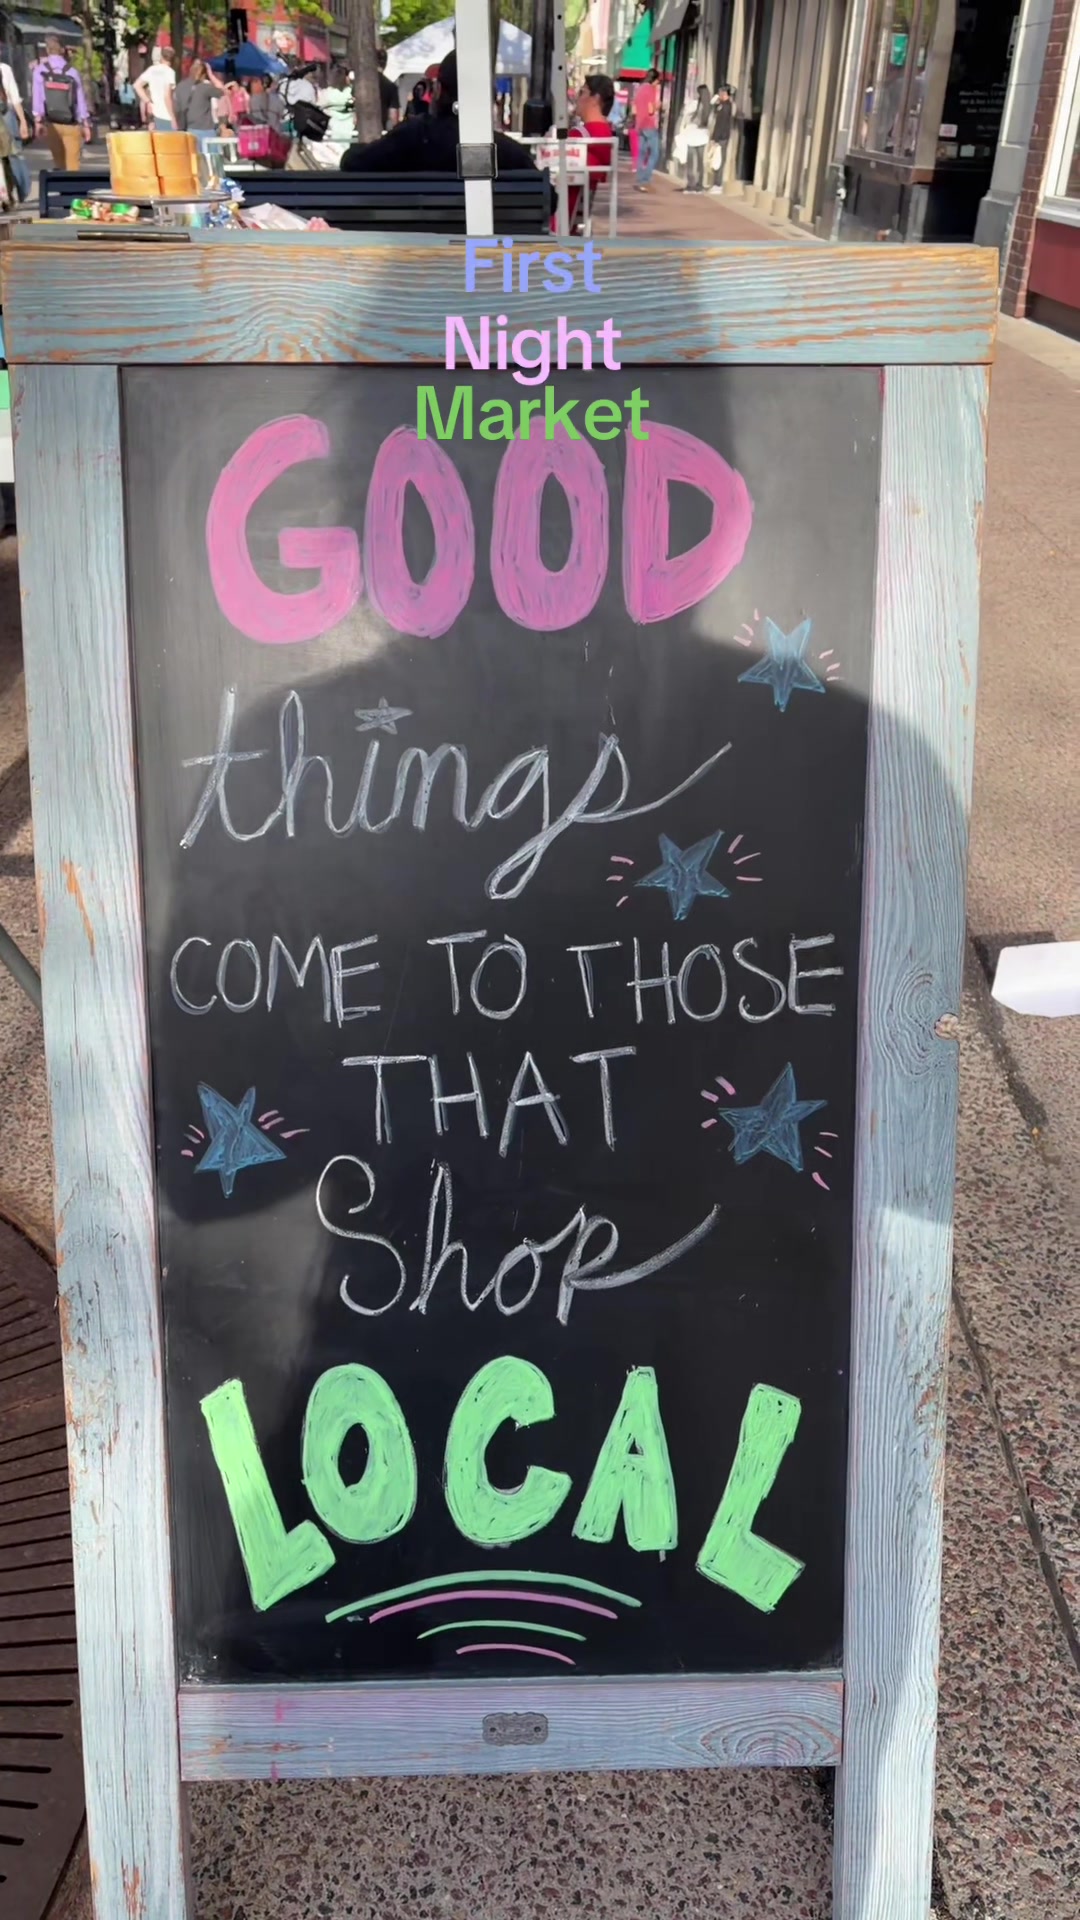 First
Night
Market
GOOD
things
COME TO THOSE
THAT
Shop
LOCAL